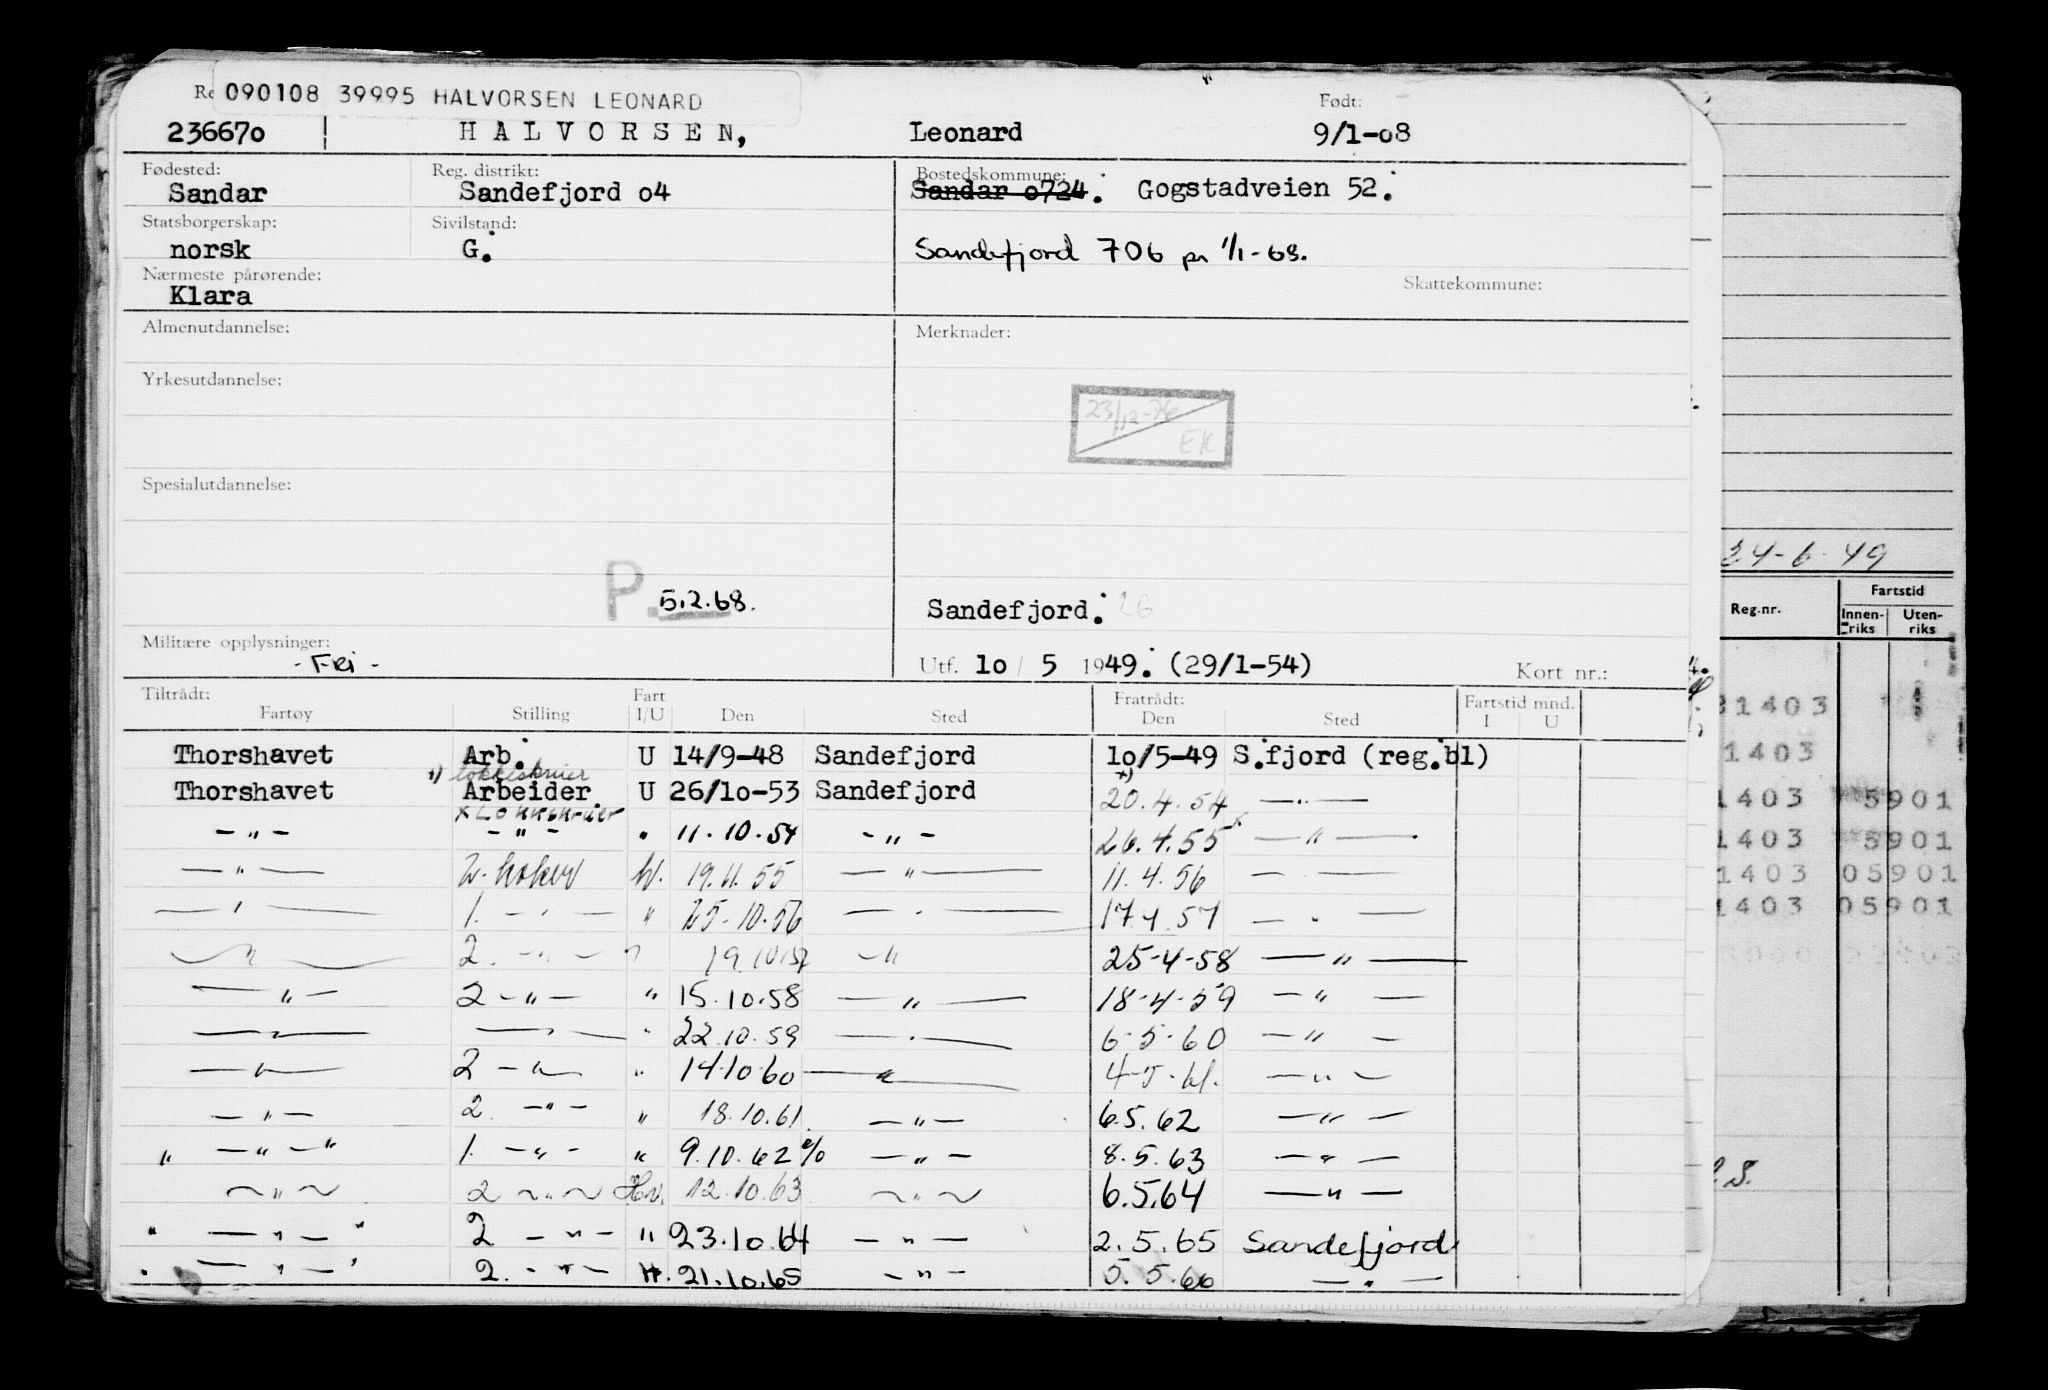 090108 39995 HALVORSEN LEONARD
Født:
236670 HALVORSEN, Leonard 9/1-08
Fødested: Reg. distrikt: Bostedskommune:
Sandar Sandefjord 04 Sandar 0724. Gogstadveien 52.
Statsborgerskap: Sivilstand:
norsk G. Sandefjord 706 pr 1/1-68.
Nærmeste pårørende: Skattekommune:
Klara
Almenutdannelse: Merknader:
Yrkesutdannelse:
23/12-76
EK
Spesialutdannelse:
24-6-49
P. 5.2.68. Sandefjord. 26
Militære opplysninger:
- FRI -
Utf. 10 / 5 1949. (29/1-54) Kort nr.:
Tiltrådt: Fart Fratrådt: Fartstid mnd.
Fartøy Stilling I/U Den Sted Den Sted I U
Thorshavet Arb. U 14/9-48 Sandefjord 10/5-49 S.fjord (reg.bl)
x) kokkeskriver
Thorshavet Arbeider U 26/10-53 Sandefjord x) 20.4.54 — " —
- " - - " - " 11.10.54 - " - 26.4.55 — " —
— " — 2. koker hv. 19.11.55 — " — 11.4.56 — . —
— " — 1. - " - " 25-10.56 — . — 17.4.57 — . —
— " — 2. - " - " 19.10.57 - " 25-4-58 — " —
— " — 2 - " - " 15.10.58 — " — 18-4-59 — " —
— " — — " — " 22.10.59 — . — 6-5-60 — " —
— " — 2 - " - " 14.10.60 — " — 4-5-61. — " —
— " — 2. - " - " 18.10.61 — " — 6.5.62 — " —
" — " — " 1. - " - " 9.10.62 — " — 8.5.63 — " —
~ " ~ 2 ~ " ~ Hv. 12.10.63 ~ " ~ 6.5.64 — " —
" — " — " 2 - " - " 23.10.64 — " — 2.5.65 Sandefjord
" — " — " 2. - " - H. 21.10.65 - " - 5.5.66 — " —
Reg.nr. Fartstid
Innen-riks Uten-riks
1403
1403
1403 5901
1403 5901
1403 05901
1403 05901